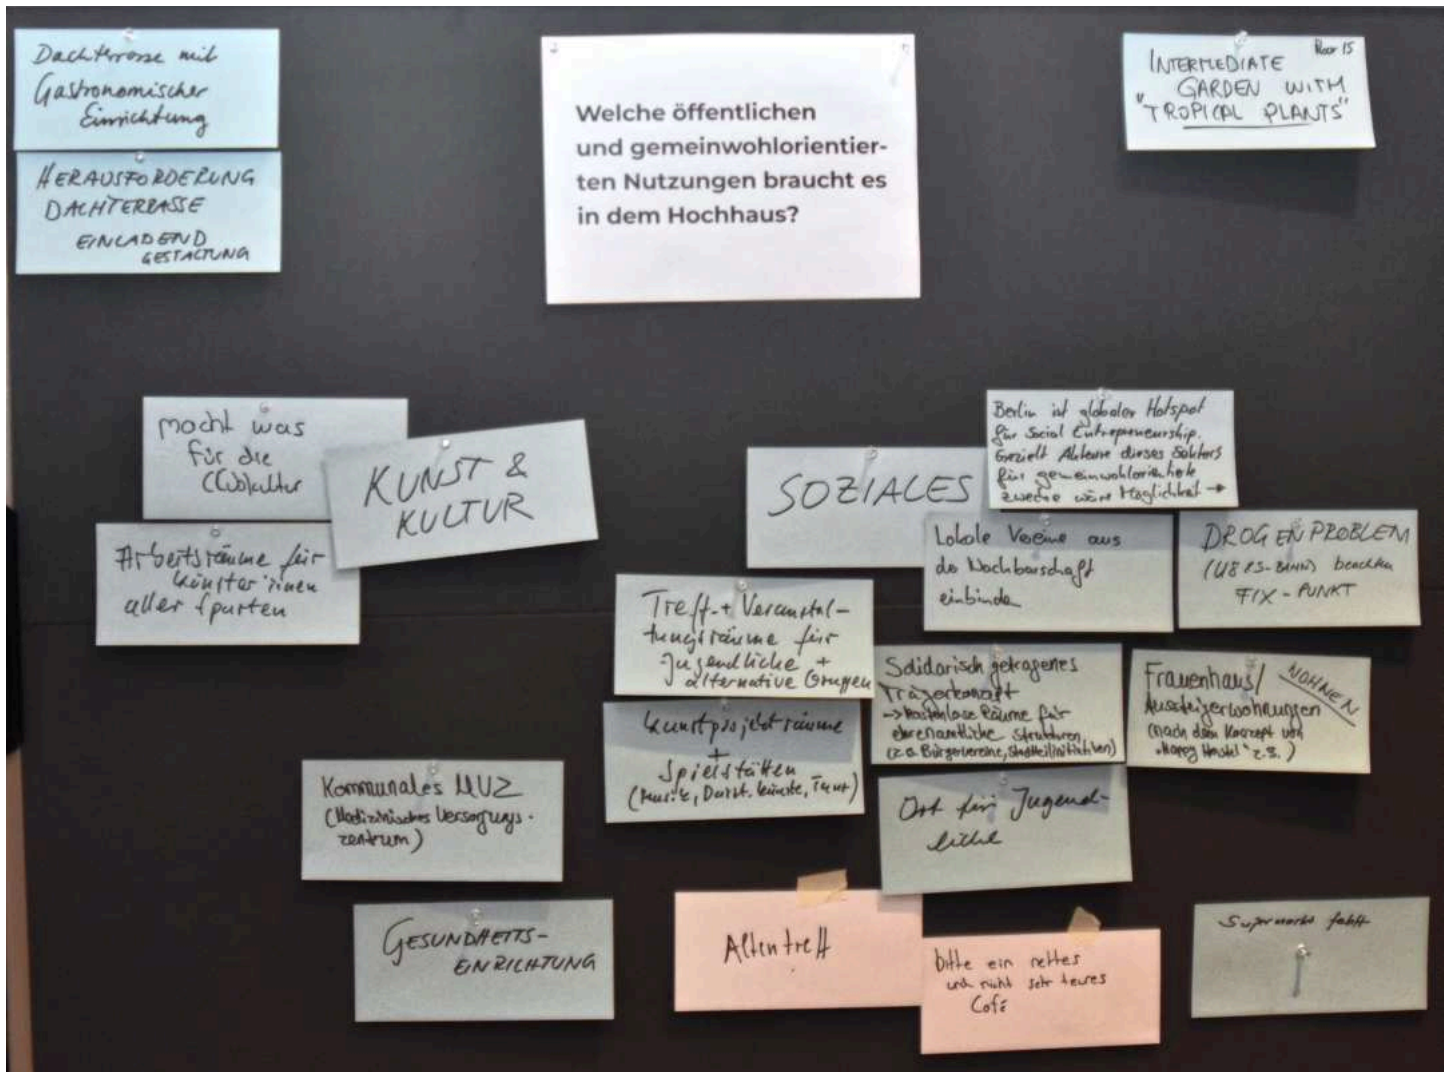 Dachterrasse mit
Gastronomischer
Einrichtung
HERAUSFORDERUNG
DACHTERRASSE
EINLADEND
GESTALTUNG
Welche öffentlichen
und gemeinwohlorientier-
ten Nutzungen braucht es
in dem Hochhaus?
Floor 15
INTERMEDIATE
GARDEN WITH
"TROPICAL PLANTS"
macht was
für die
(Club)kultur
KUNST &
KULTUR
Arbeitsräume für
Künstler*innen
aller Sparten
SOZIALES
Berlin ist globaler Hotspot
für Social Entrepreneurship.
Gezielt Akteure dieses Sektors
für gemeinwohlorientierte
Zwecke wäre Möglichkeit →
Lokale Vereine aus
der Nachbarschaft
einbinden
DROGENPROBLEM
(U8 + S-BAHN) beachten
FIX-PUNKT
Treff- + Veranstal-
tungsräume für
Jugendliche +
alternative Gruppen
Solidarisch getragenes
Trägerkonzept
-> kostenlose Räume für
ehrenamtliche Strukturen
(z.B. Bürgervereine, Stadtteilinitiativen)
Frauenhaus/
WOHNEN
Aussteigerwohnungen
(nach dem Konzept von
"Happy Hostel" z.B.)
Kunstprojekträume
+
Spielstätten
(Musik, Darst. Künste, Tanz)
Ort für Jugend-
liche
Kommunales MVZ
(Medizinisches Versorgungs-
zentrum)
GESUNDHEITS-
EINRICHTUNG
Altentreff
bitte ein nettes
und nicht sehr teures
Café
Supermarkt fehlt